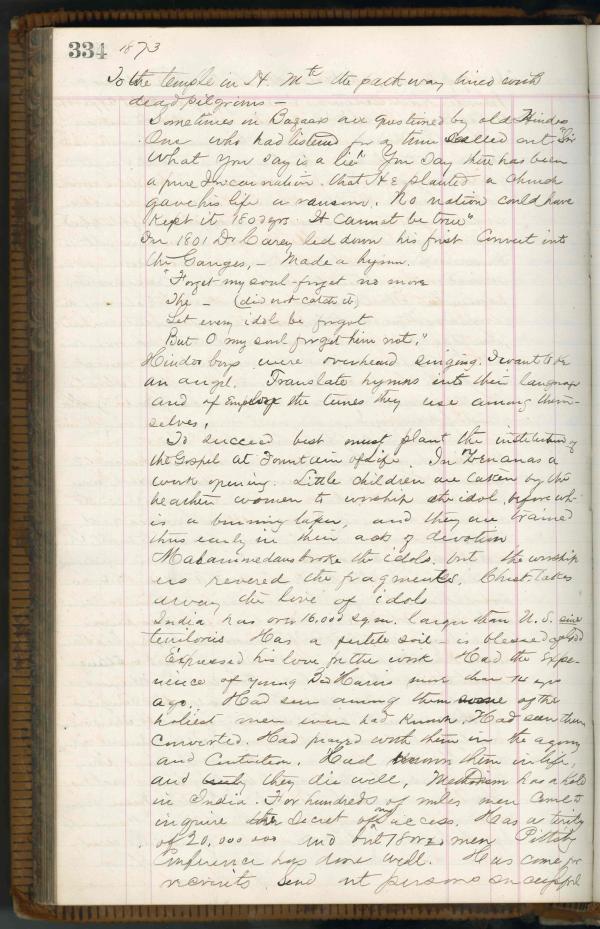 334 1873
To the temple in H. Mth the path way lined with
dead pilgrims —
Sometimes in Bazaars are questioned by old Hindoo
One who had listened for a time called out "Sir
What you say is a lie" You say there has been
a pure Incarnation. that He planted a church
gave his life a ransom. No nation could have
kept it 1800 yrs. It cannot be true"
In 1801 Dr Carey led down his first Convert into
the Ganges, — Made a hymn.
"Forget my soul forget no more
The — (did not catch it)
Let every idol be forgot
But O my soul forget him not."
Hindoo boys were overheard singing. I want to be
an angel. Translate hymns into their language
and if employ the tunes they use among them-
selves.
To succeed best must plant the institution of
the Gospel at Fountain of Life. In Zenanas a
work opening. Little children are taken by the
heathen women to worship the idol, before wh-
is a burning taper, and they are trained
thus early in their acts of devotion
Mahammedans broke the idols. but the worship
ers revered the fragments. Christ takes
away the love of idols
India has over 16,000 sq. m. larger than U.S. since
territories Has a fertile soil — is blessed of God
Expressed his love for the work Had the expe-
rience of young Bro Harris more than 14 yrs
ago. Had seen among them some of the
holiest men ever had known. Had seen them
converted. Had prayed with them in the agony
and Contrition. Had known them in life,
and they die well, Methodism has a hold
in India. For hundreds of miles men come to
inquire the secret of my access. Has a
of 20,000 000 and but 18 men Pittsby
Conference has done well. Has come for
recruits. Send out persons successful